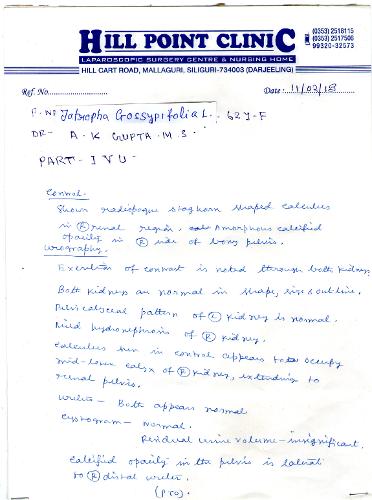 HILL POINT CLINIC
(0353) 2518115
(0353) 2517506
99320-32573
LAPAROSCOPIC SURGERY CENTRE & NURSING HOME
HILL CART ROAD, MALLAGURI, SILIGURI-734003 (DARJEELING)
Ref. No.
Date: 11/02/18
P. No Jatropha Gossypifolia L. 62 Y-F
DR- A. K GUPTA. M.S.
PART- I V U-
Control.
Shows radiopaque staghorn shaped calculus
in (R) renal region. Amorphous calcified
opacity in (R) side of bony pelvis.
Urography.
Excretion of contrast is noted through both kidneys
Both kidneys are normal in shape, size & outline.
Pelvicalyceal pattern of (L) kidney is normal.
Mild hydronephrosis of (R) kidney.
Calculus seen in control appears to occupy
mid-lower calyx of (R) kidney, extending to
renal pelvis.
Ureters - Both appears normal
Cystogram - Normal.
Residual urine volume - insignificant.
Calcified opacity in the pelvis is lateral
to (R) distal ureter.
(PTO).